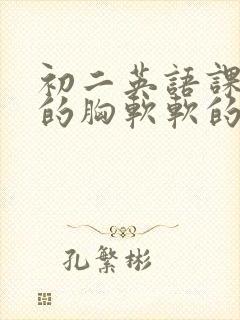 初二英語課
的胸軟軟的
孔繁彬